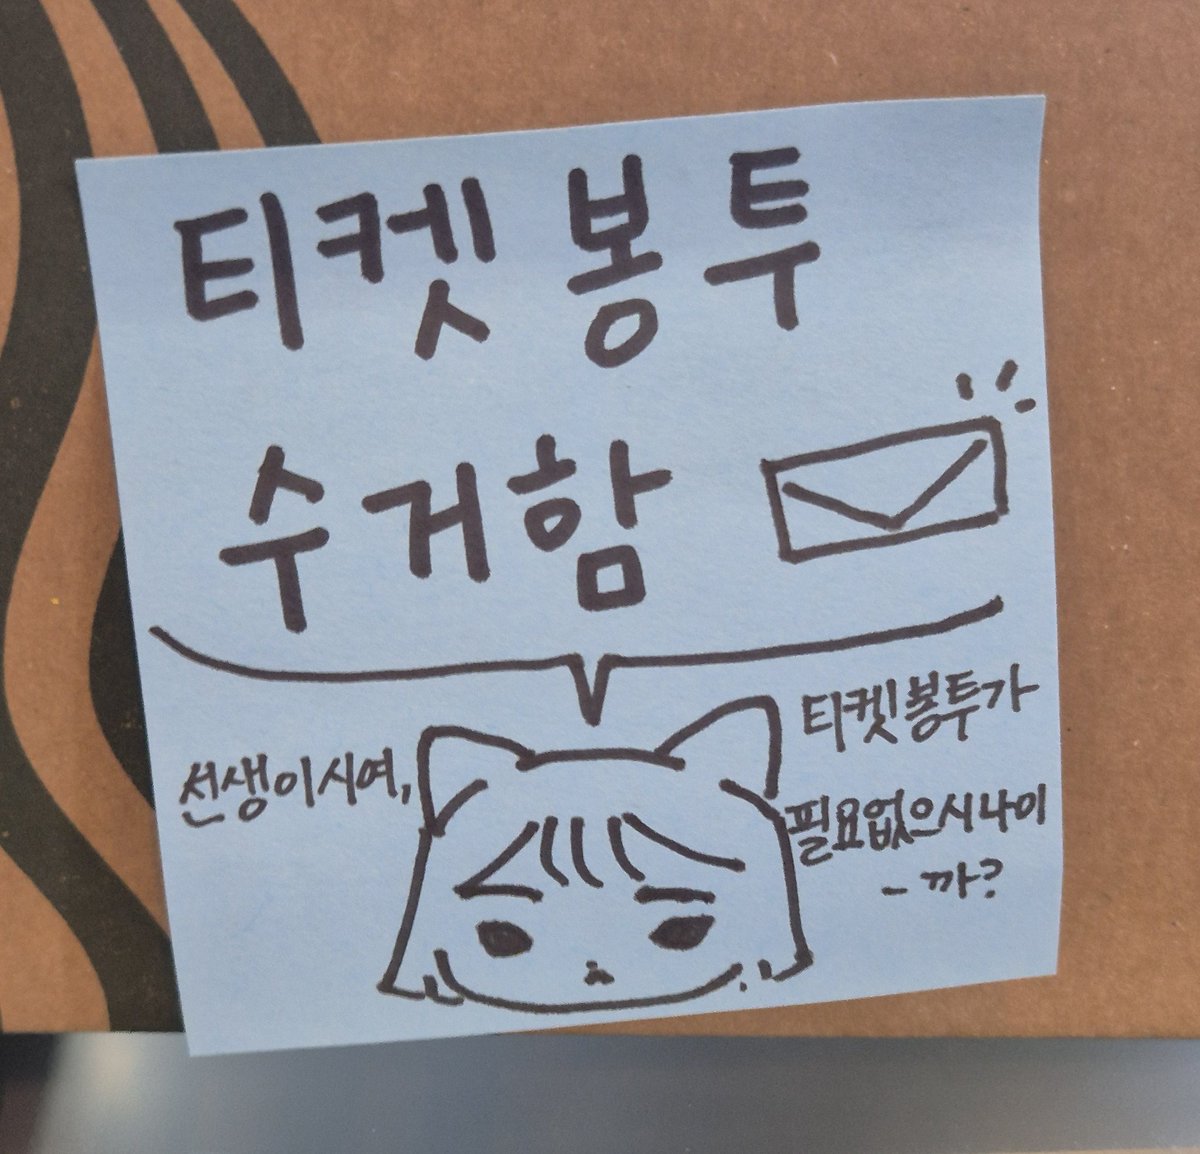 티켓 봉투
수거함
선생이시여,
티켓봉투가
필요없으시나이
-까?